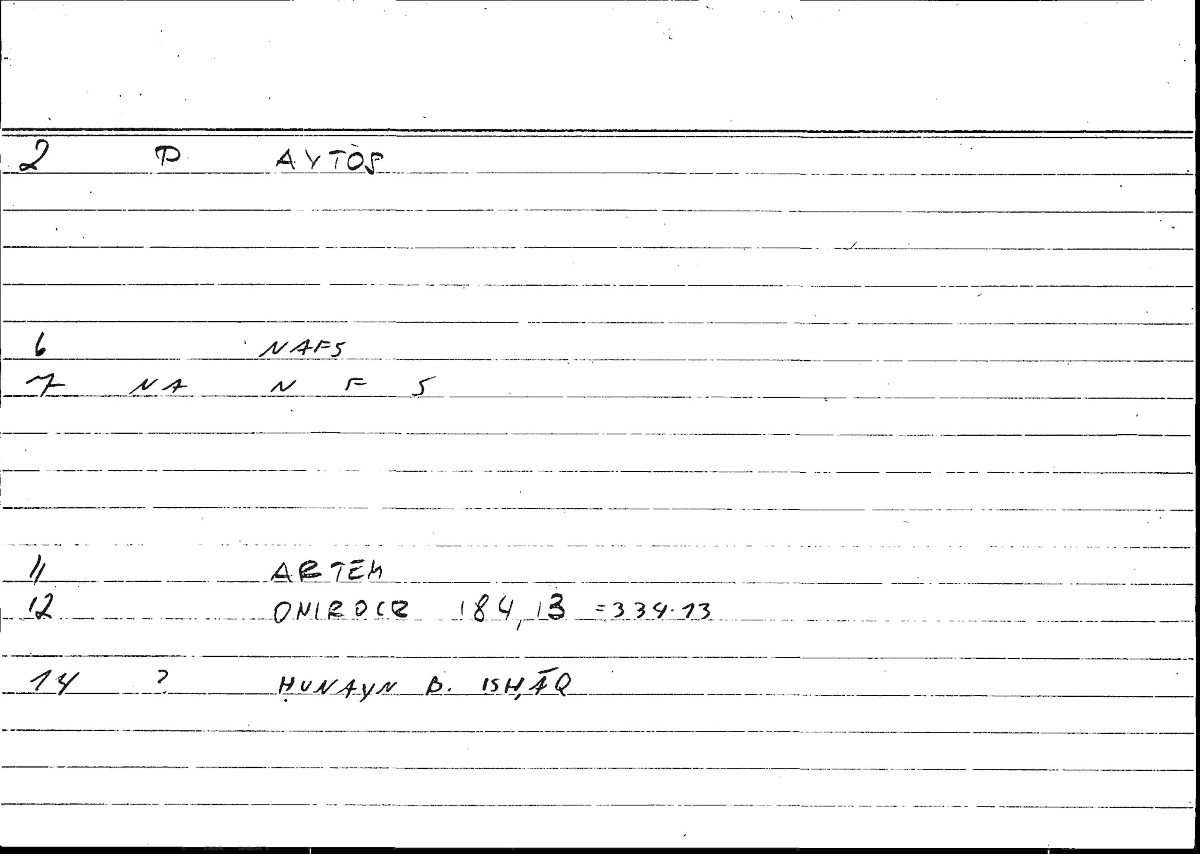 2 P ΑΥΤΌΣ
6 NAFS
7 NA N F S
11 ARTEM
12 ONIROCR 184,13 =334.13
14 ? ḤUNAYN B. ISḤĀQ